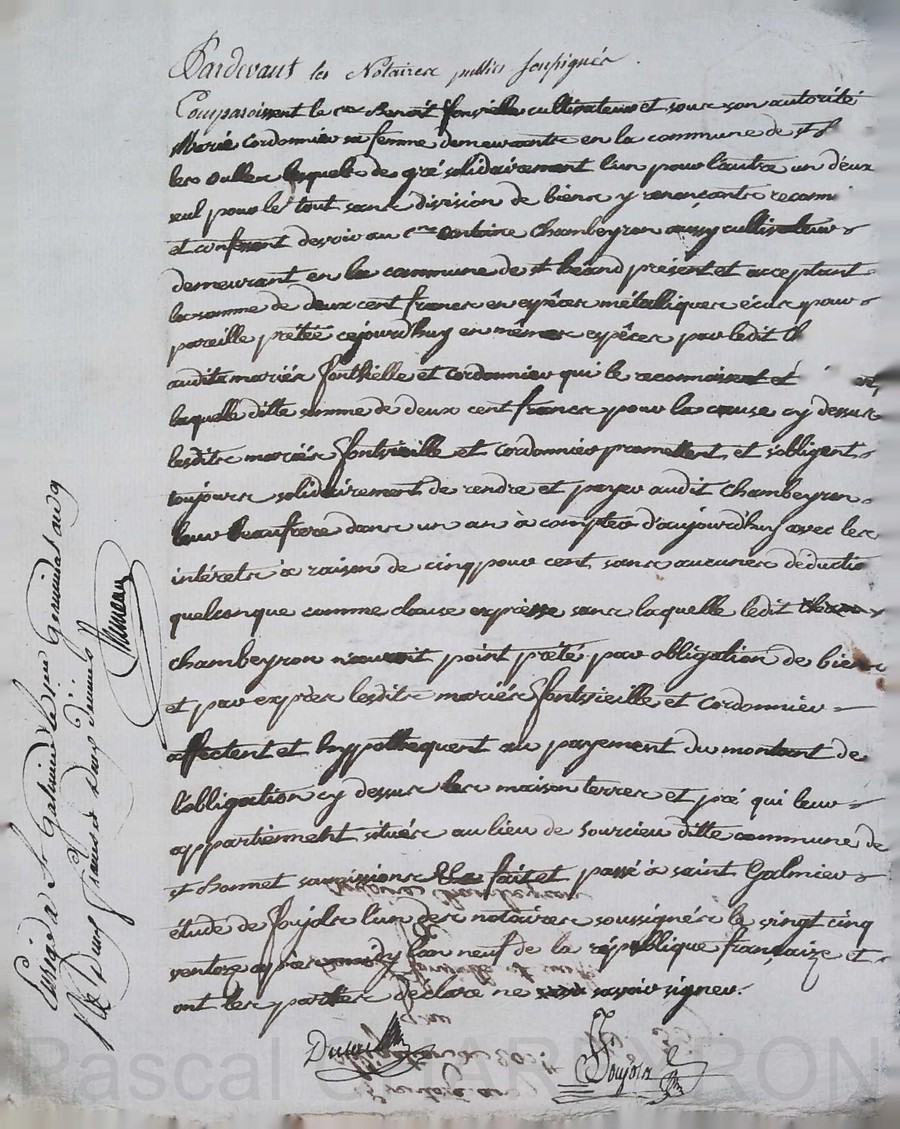 Pardevant les Notaires publics soussignés.
Comparoissent le cen Benoit fonvielle cultivateur et sous son autorité
Marie cordonnier sa femme demeurante en la commune de st
les oulles lesquels de gré solidairement l'un pour l'autre un deux
seul pour le tout sans division de biens y renoncants reconn
et confessent devoir au cen antoine chambeyron aussy cultivateur
demeurant en la commune de st héand présent et acceptant
la somme de deux cent francs en espêces métalliques écus pour
pareille prêtée cejourd'huy en mêmes espêces par ledit ch
audits mariés fontvielle et cordonnier qui le reconnoissent et
laquelle ditte somme de deux cent francs pour la cause cy dessus
lesdits mariés fontvieille et cordonnier promettent et s'obligent
toujours solidairement de rendre et payer audit chambeyron
leur beaufrere dans un an à compter d'aujourd'huy avec les
intérets à raison de cinq pour cent sans aucunes déductio
quelconque comme clause expresse sans laquelle ledit
chambeyron n'auroit point prêté par obligation de biens
et par exprès lesdits mariés fontvieille et cordonnier
affectent et hyppothequent au payement du montant de
l'obligation cy dessus les maison terres et pré qui leur
appartiennent situés au lieu de sourcieu ditte commune de
st Bonnet soumissions fait et passé à saint Galmier
étude de Soujols l'un des notaires soussignés le vingt cinq
ventose après midy l'an neuf de la république françaize et
ont les parties déclaré ne savoir signer.
Soujols
Enrigé à St Galmier le germinal an 9
Rx Deux francs